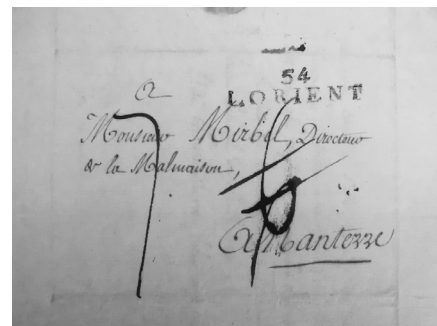 54
L'ORIENT
a
Monsieur Mirbel, Directeur
de la Malmaison,
7
A Nanterre